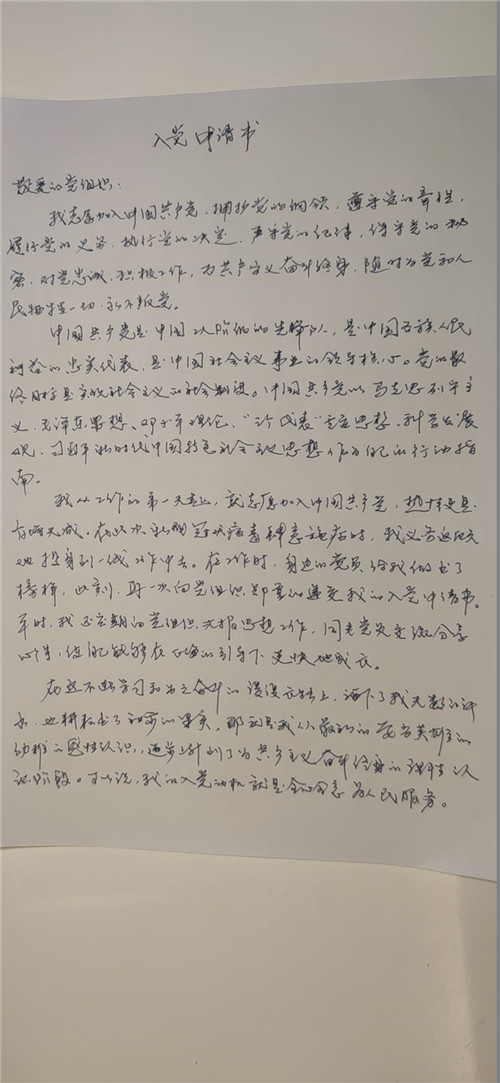 入党申请书
敬爱的党组织：
我志愿加入中国共产党，拥护党的纲领，遵守党的章程，
履行党的义务，执行党的决定，严守党的纪律，保守党的秘
密，对党忠诚，积极工作，为共产主义奋斗终身，随时为党和人
民牺牲一切，永不叛党。
中国共产党是中国工人阶级的先锋队，是中国各族人民
利益的忠实代表，是中国社会主义事业的领导核心。党的最
终目的是实现社会主义的社会制度。中国共产党以马克思列宁主
义、毛泽东思想、邓小平理论、“三个代表”重要思想、科学发展
观、习近平新时代中国特色社会主义思想作为自己的行动指
南。
我从工作的第一天起，就志愿加入中国共产党，热情更是
有增无减。在此次新型冠状病毒肆意施虐时，我义无返顾
地投身到一线工作中去。在工作时，身边的党员给我做出了
榜样，此刻，再一次向党组织郑重的递交我的入党申请书。
平时，我还定期向党组织汇报思想工作，同老党员交流分享
心得，使自己能够在正确的引导下更快地成长。
在这不断学习和为之奋斗的漫漫长路上，洒下了我无数的汗
水，也耕耘出了甜蜜的果实。那就是我从最初的要当英雄的
幼稚的感性认识，逐步上升到了为共产主义奋斗终身的理性认
识阶段。可以说，我的入党动机就是全心全意为人民服务。